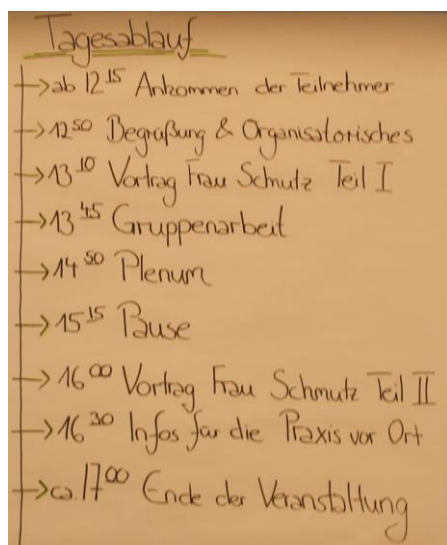 Tagesablauf
→ ab 12 15 Ankommen der Teilnehmer
→ 12 50 Begrüßung & Organisatorisches
→ 13 10 Vortrag Frau Schmutz Teil I
→ 13 45 Gruppenarbeit
→ 14 50 Plenum
→ 15 15 Pause
→ 16 00 Vortrag Frau Schmutz Teil II
→ 16 30 Infos für die Praxis vor Ort
→ ca. 17 00 Ende der Veranstaltung